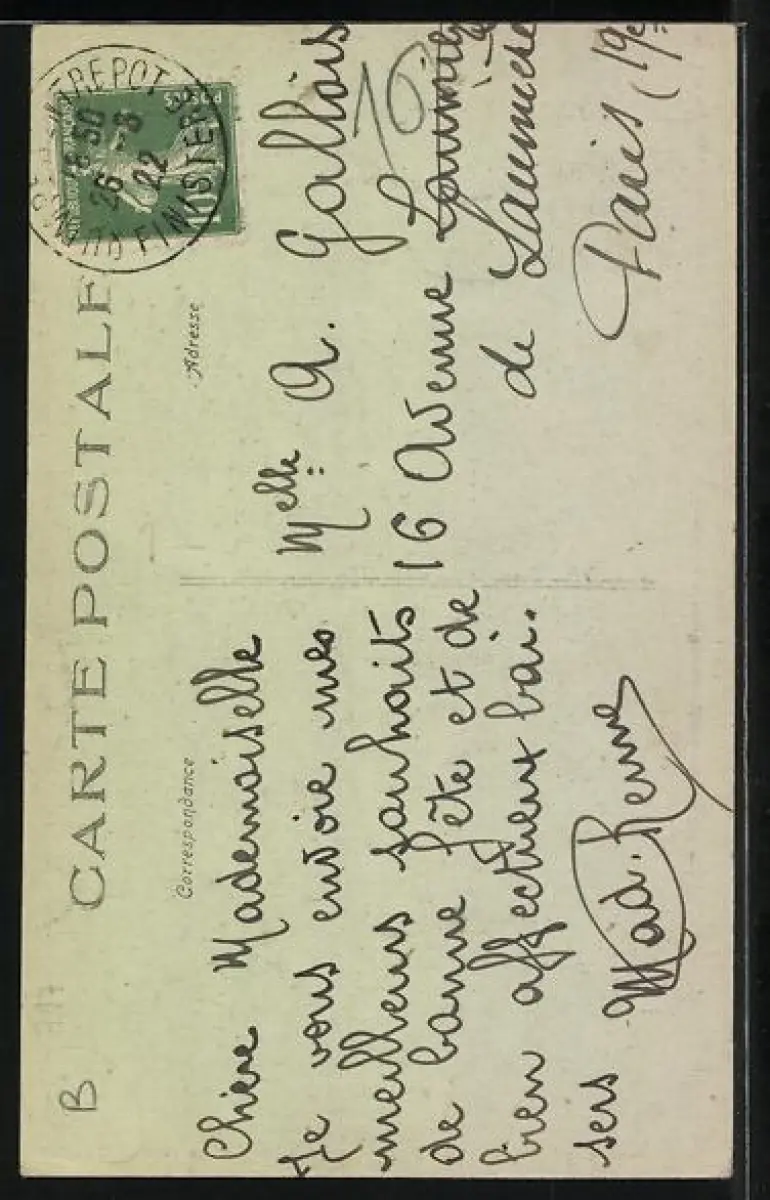 B
CARTE POSTALE
Correspondance
Adresse
Chère Mademoiselle
Je vous envoie mes
meilleurs souhaits
de bonne fête et de
bien affectueux bai-
sers
Mad. Renne
Melle A. Gallois
16
16 Avenue
de Laumière
Paris (19e
26 -5
22
FINISTERE
10
POSTES